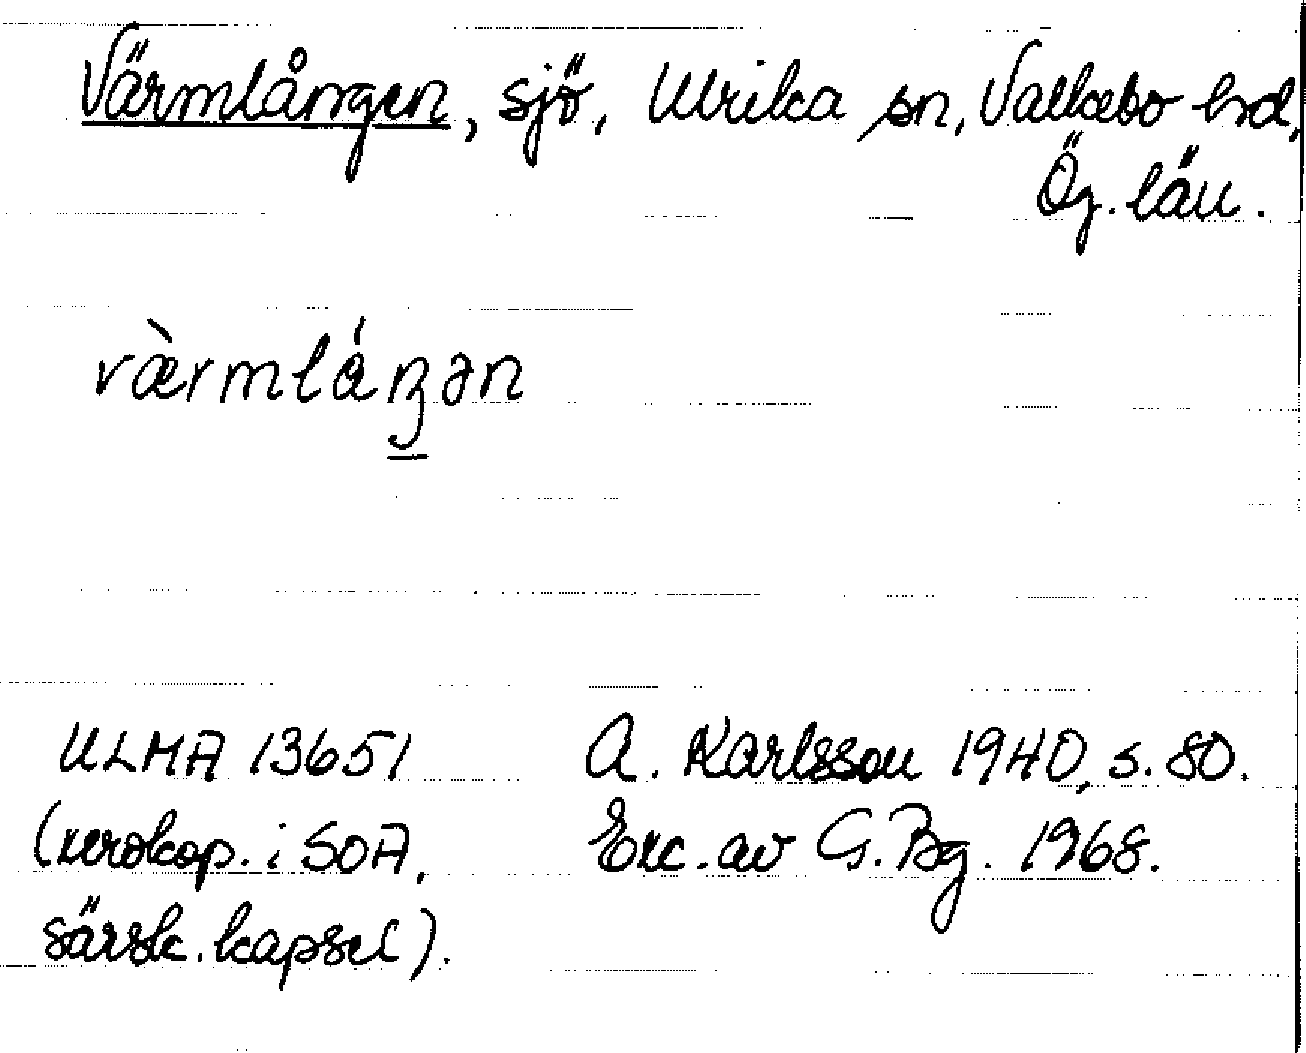 Värmlången, sjö, Ulrika sn, Valkebo hd,
Ög. län.
vàrmlåŋən
ULMA 13651 A. Karlsson 1940, s. 80.
(xerokop. i SOA, Exc. av G. Bg. 1968.
särsk. kapsel).